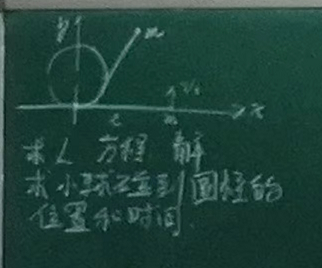 y
m
v₀
l
m
x
求 L 方程 解
求小球碰到圆柱的
位置和时间.